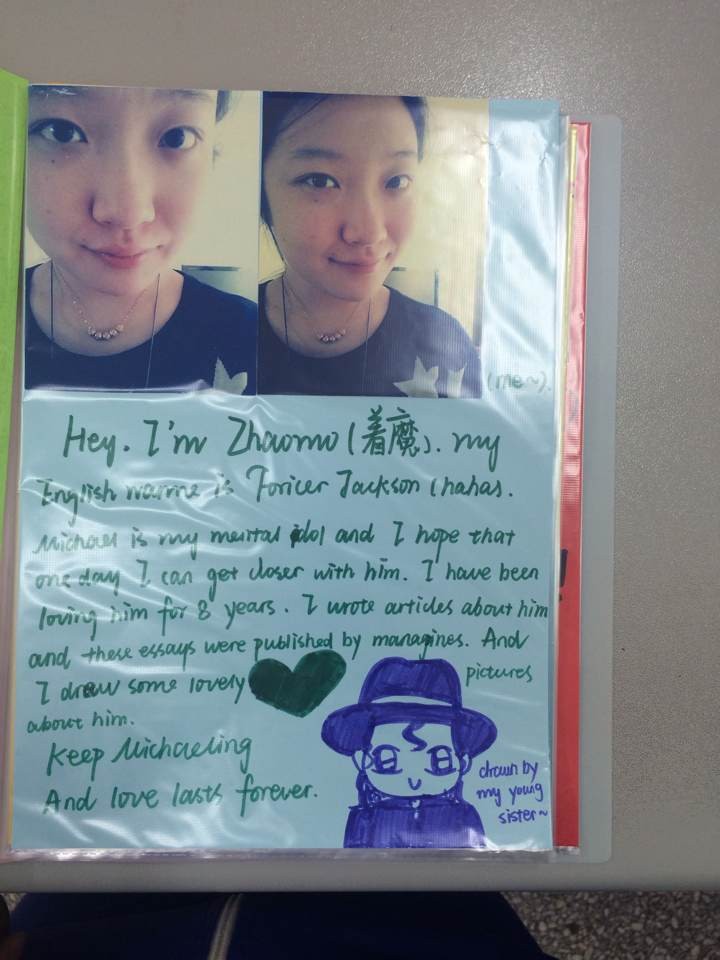 (me~).
Hey. I'm Zhaomo (着魔). my
English name is Foricer Jackson (haha).
Michael is my mental idol and I hope that
one day I can get closer with him. I have been
loving him for 8 years. I wrote articles about him
and these essays were published by managines. And
I draw some lovely pictures
about him.
Keep Michaeling
And love lasts forever.
drawn by
my young
sister~
!